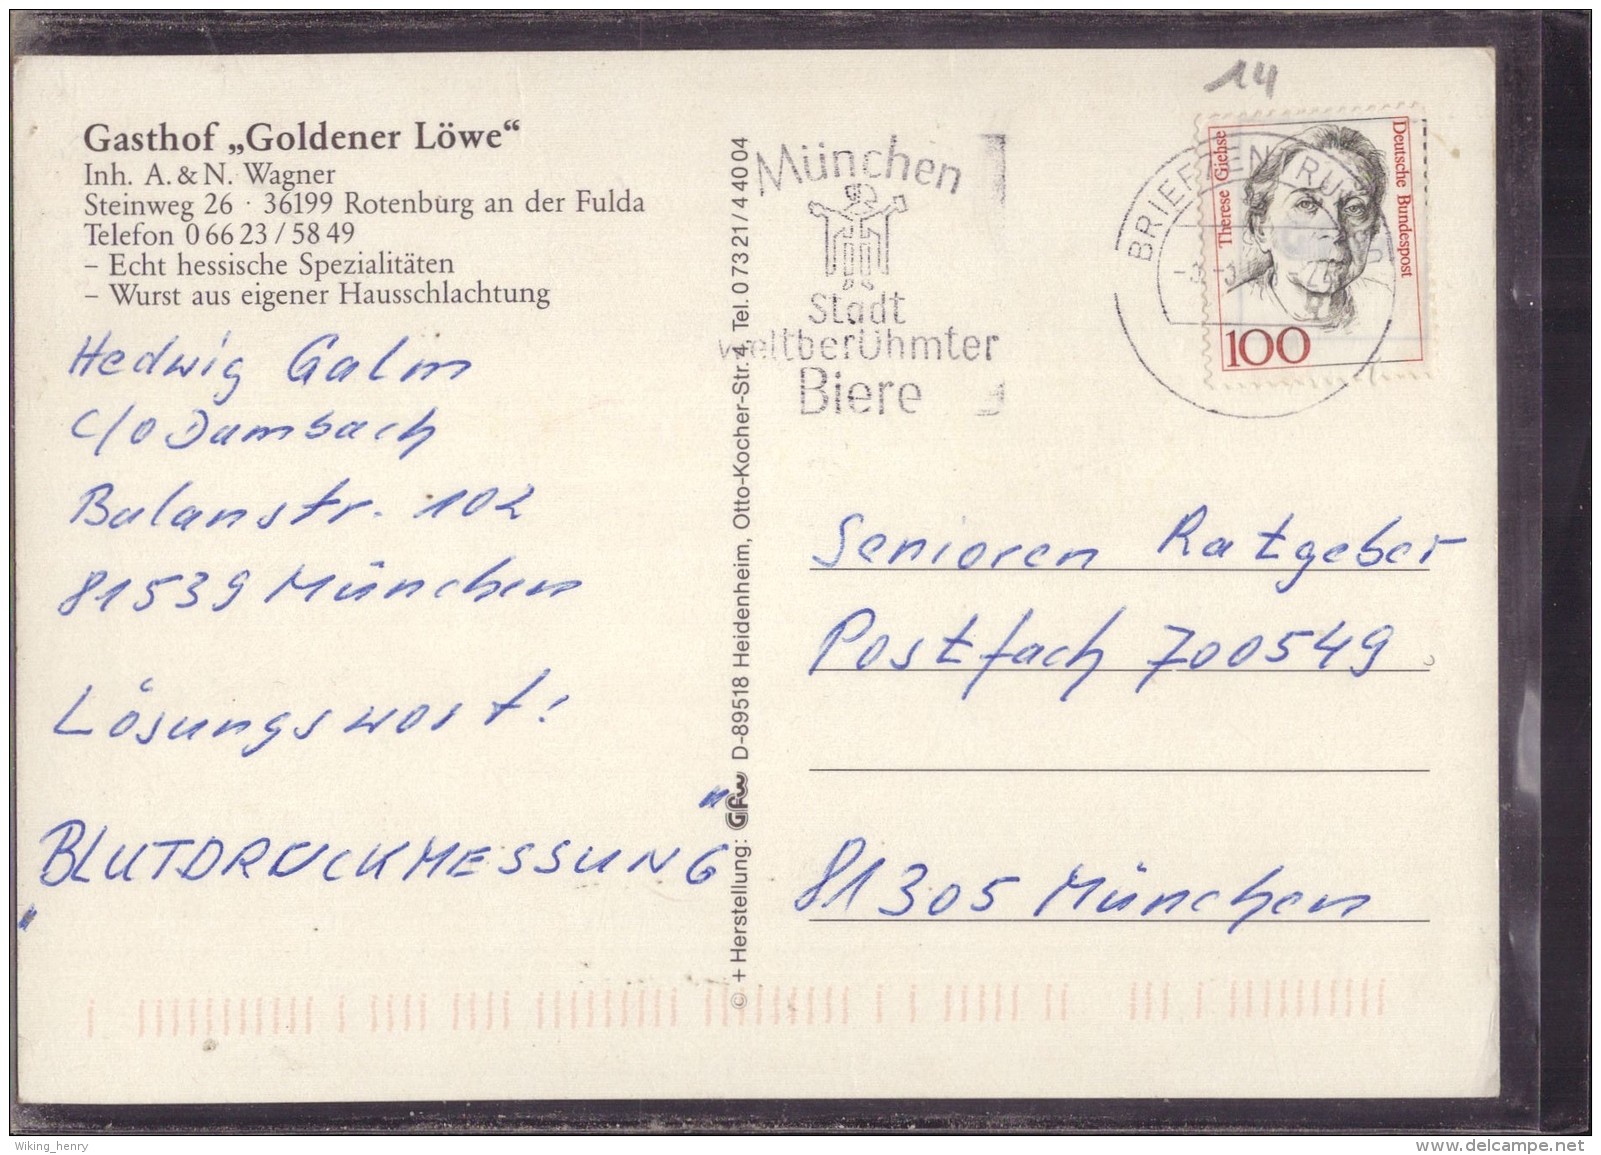 14
Gasthof „Goldener Löwe“
Inh. A. & N. Wagner
Steinweg 26 · 36199 Rotenburg an der Fulda
Telefon 0 66 23 / 58 49
– Echt hessische Spezialitäten
– Wurst aus eigener Hausschlachtung
Hedwig Galm
c/o Dambach
Balanstr. 102
81539 München
Lösungswort:
"BLUTDRUCKMESSUNG"
© + Herstellung: GFW D-89518 Heidenheim, Otto-Kocher-Str. 4, Tel. 0 73 21 / 4 40 04
München
Stadt
weltberühmter
Biere
BRIEFZENTRUM
Therese Giehse
Deutsche Bundespost
100
Senioren Ratgeber
Postfach 700549
81305 München
Wiking_henry
www.delcampe.net